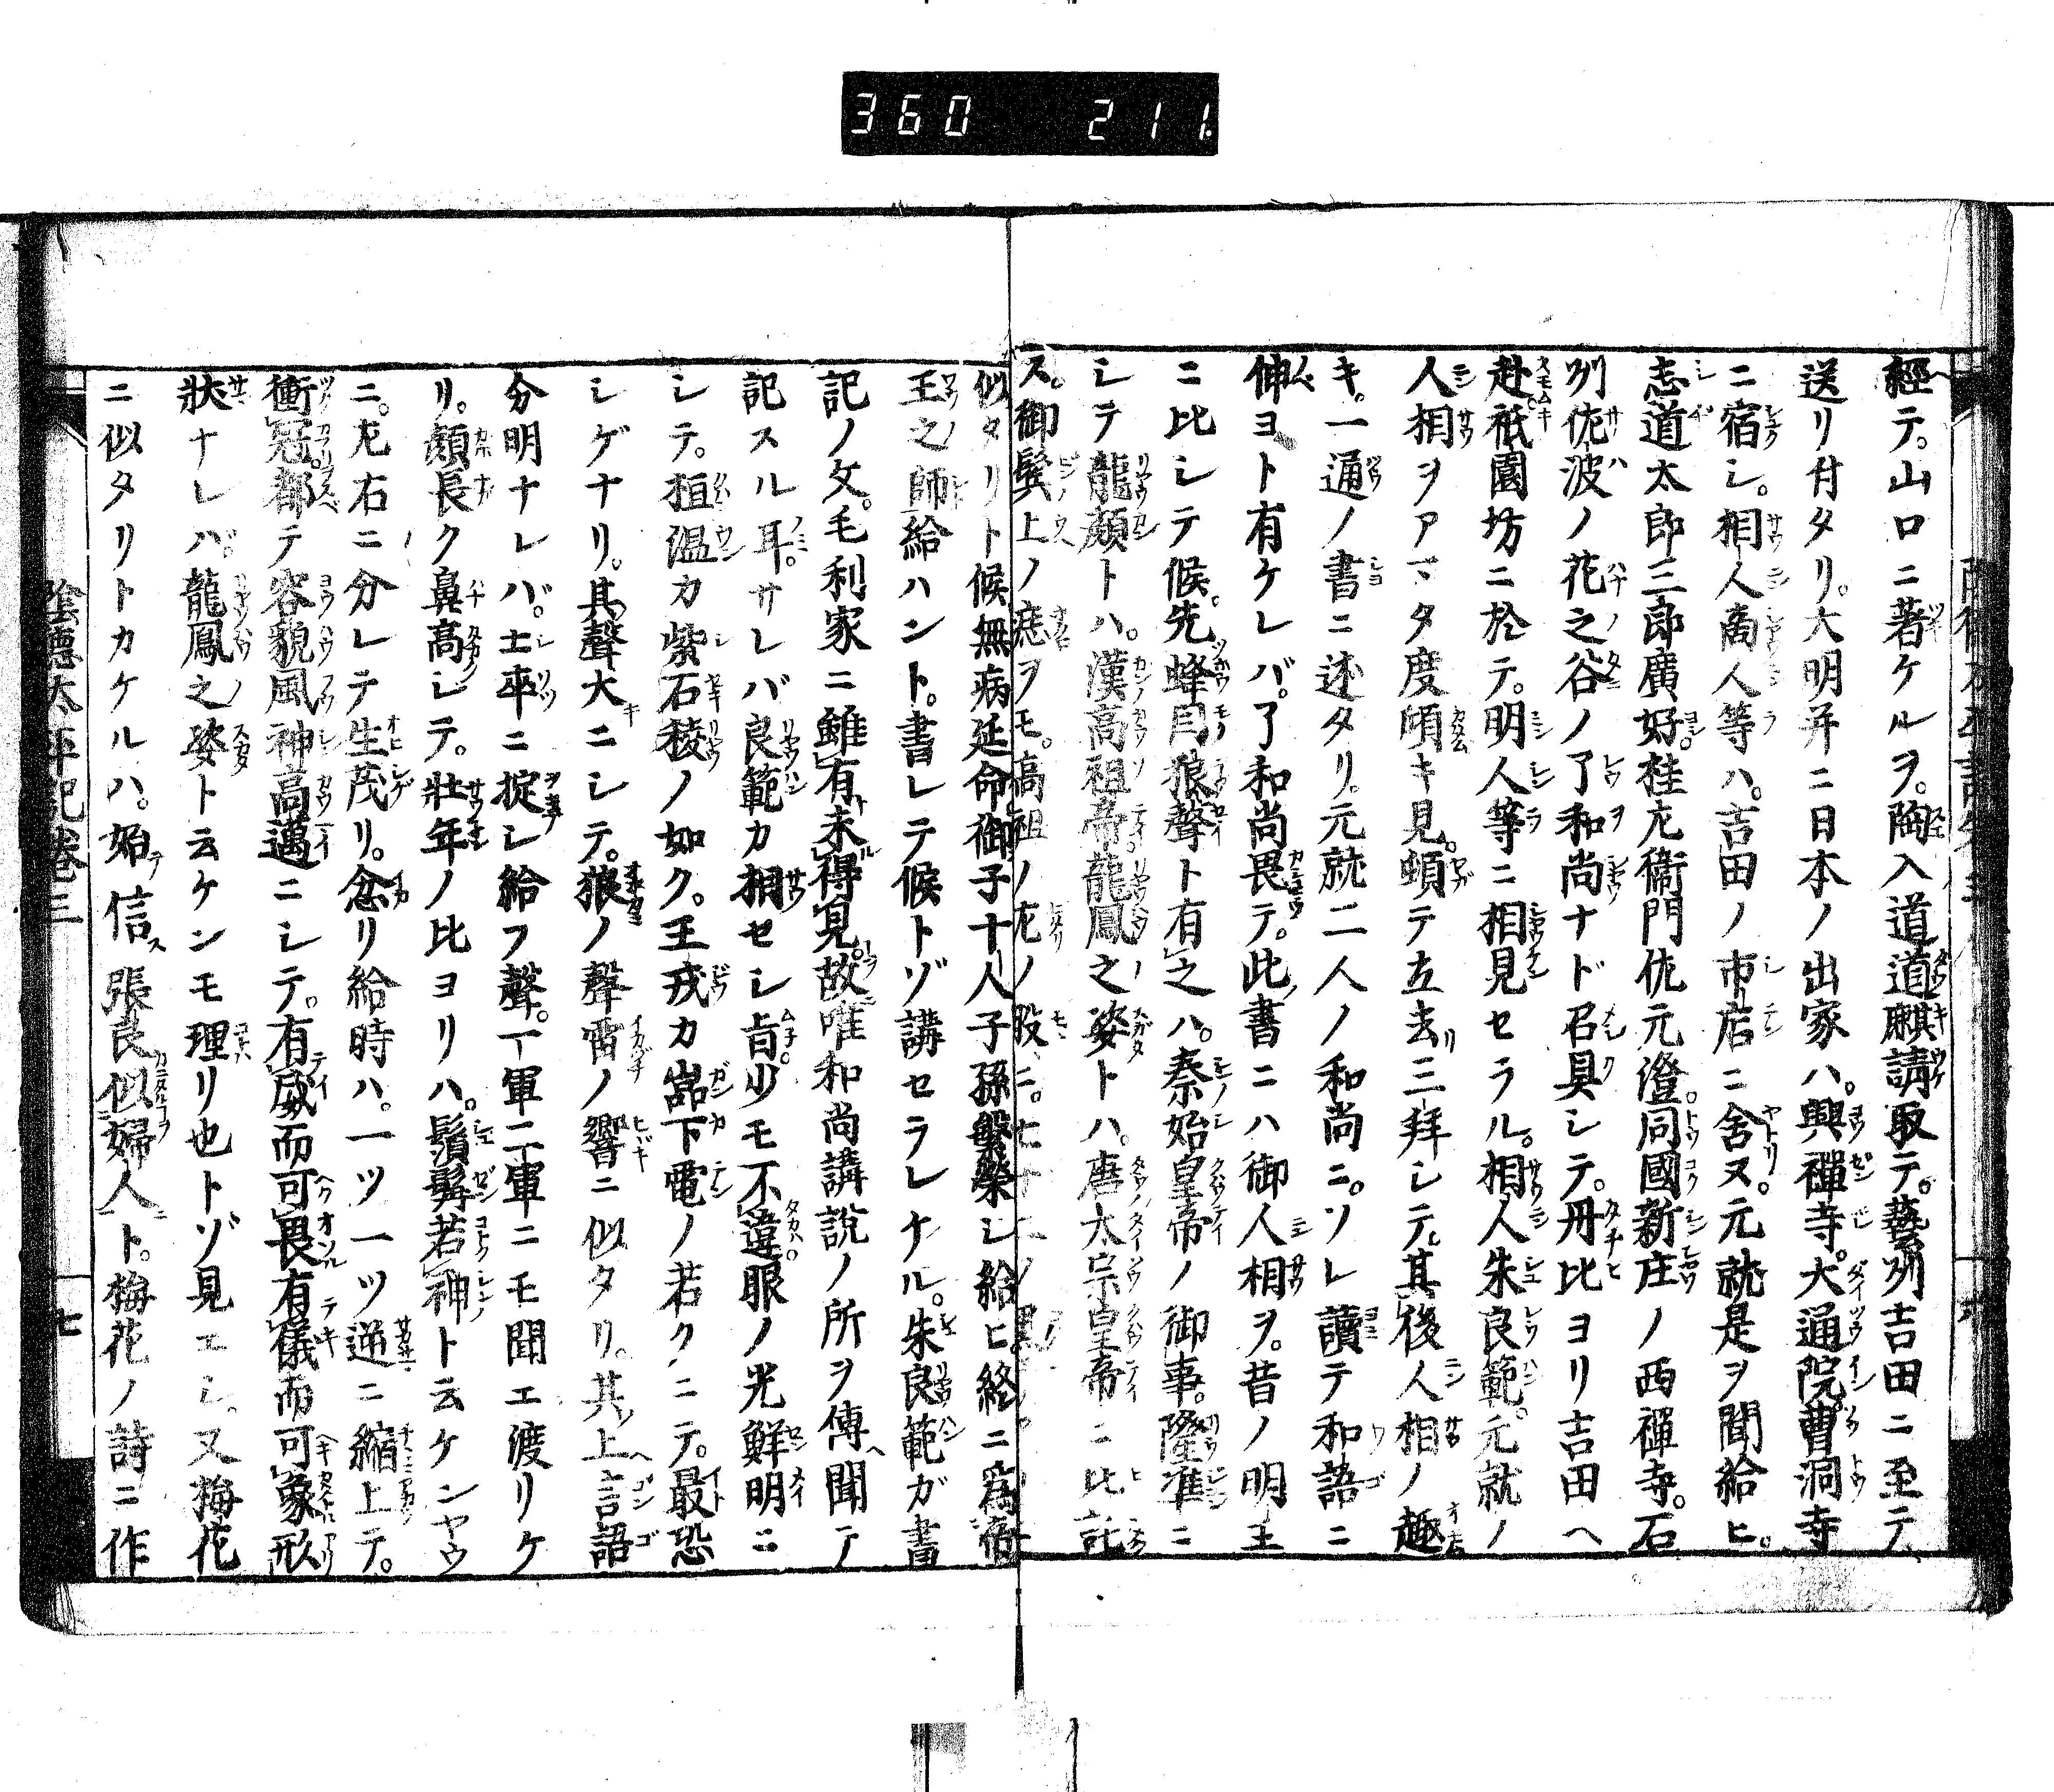 360 211
經テ。山口ニ著ケルヲ。陶入道道麒請取テ。藝州吉田ニ至テ
送リ付タリ。大明并ニ日本ノ出家ハ。興禪寺。大通院。曹洞寺
ニ宿シ。相人商人等ハ。吉田ノ市店ニ舍ス。元就是ヲ聞給ヒ。
志道太郎三郎廣好。桂左衞門佐元澄。同國新庄ノ西禪寺。石
州佐波ノ花之谷ノ了和尚ナド召具シテ。丹比ヨリ吉田ヘ
赴。祇園坊ニ於テ。明人等ニ相見セラル。相人朱良範。元就ノ
人相ヲアマタ度頃キ見。蝢テ立去リ三拜シテ。其後人相ノ趣
キ。一通ノ書ニ述タリ。元就二人ノ和尚ニ。ソレ讀テ和語ニ
伸ヨト有ケレバ。了和尚畏テ。此書ニハ御人相ヲ。昔ノ明王
ニ比シテ候。先蜂目狼聲ト有之ハ。秦始皇帝ノ御事。隆準ニ
シテ龍顏トハ。漢高祖帝。龍鳳之姿トハ。唐太宗皇帝ニ比託
ス。御鬢上ノ痣ヲモ。高祖ノ左ノ股ニ。七十二ノ黑
似タリト候無病延命御子十人子孫繁榮シ給ヒ終ニ爲帝
王之師給ハント。書シテ候トゾ講セラレケル。朱良範ガ書
記ノ文。毛利家ニ雖有未得見。故唯和尚講說ノ所ヲ傳聞テ
記スル耳。サレバ良範カ相セシ旨少モ不違眼ノ光鮮明ニ
シテ。桓温カ紫石稜ノ如ク。王戎カ嵓下電ノ若クニテ。最恐
シゲナリ。其聲大ニシテ。狼ノ聲雷ノ響ニ似タリ。其上言語
分明ナレバ。士卒ニ掟シ給フ聲。一軍二軍ニモ聞エ渡リケ
リ。顏長ク鼻高シテ。壯年ノ比ヨリハ。鬚髯若神ト云ケンヤウ
ニ。左右ニ分レテ生茂リ。忿リ給時ハ。一ツ一ツ逆ニ縮上テ。
衝冠。都テ容貌風神高邁ニシテ。有威而可畏有儀而可象形
狀ナレバ。龍鳳之姿ト云ケンモ理リ也トゾ見エシ。又梅花
ニ似タリトカケルハ。始信張良似婦人ト。梅花ノ詩ニ作
陰德太平記卷三
七